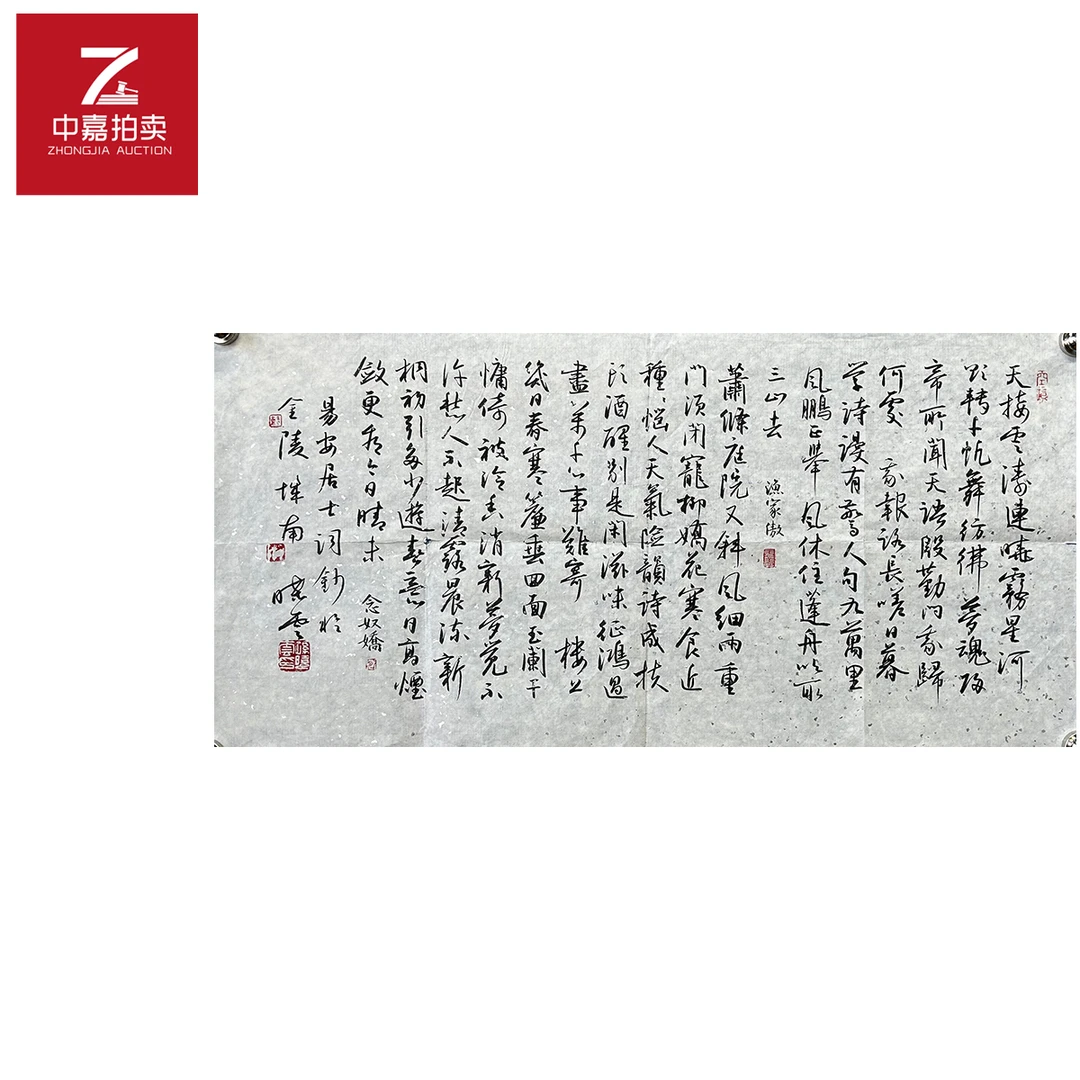 中嘉拍卖
ZHONGJIA AUCTION
天接雲濤連曉霧星河
欲轉千帆舞彷彿夢魂歸
帝所聞天語殷勤問我歸
何處 我報路長嗟日暮
學詩謾有驚人句九萬里
風鵬正舉風休住蓬舟吹取
三山去
漁家傲
蕭條庭院又斜風細雨重
門須閉寵柳嬌花寒食近
種種惱人天氣險韻詩成扶
頭酒醒別是閑滋味征鴻過
盡萬千心事難寄 樓上
幾日春寒簾垂四面玉闌干
慵倚被冷香消新夢覺不
許愁人不起清露晨流新
桐初引多少遊春意日高煙
斂更看今日晴未
念奴嬌
易安居士詞鈔於
金陵城南
曉雲